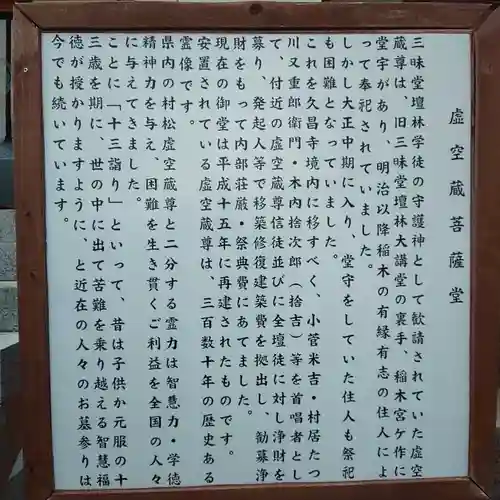 虚空蔵菩薩堂
三昧堂壇林学徒の守護神として歓請されていた虚空
蔵尊は、旧三昧堂壇林大講堂の裏手、稲木宮ケ作に
堂宇があり、明治以降稲木の有縁有志の住人によ
って奉祀されていました。
しかし大正中期に入り、堂守をしていた住人も祭祀
も困難となっていました。
これを久昌寺境内に移すべく、小菅米吉・村居たつ
川又重郎衛門・木内捨次郎(捨吉)等を首唱者とし
て、付近の虚空蔵尊信徒並びに全壇徒に対し浄財を
募り、発起人等で移築修復建築費を拠出し、勧募浄
財をもって内部荘厳・祭典費にあてました。
現在の御堂は平成十五年に再建されたものです。
安置されている虚空蔵尊は、三百数十年の歴史ある
霊像です。
県内の村松虚空蔵尊と二分する霊力は智慧力・学徳
精神力を与え、困難を生き貫くご利益を全国の人々
に与えてきました。
ことに「十三詣り」といって、昔は子供か元服の十
三歳を期に、世の中に出て苦難を乗り越える智慧福
徳が授かりますように、と近在の人々のお墓参りは
今でも続いています。